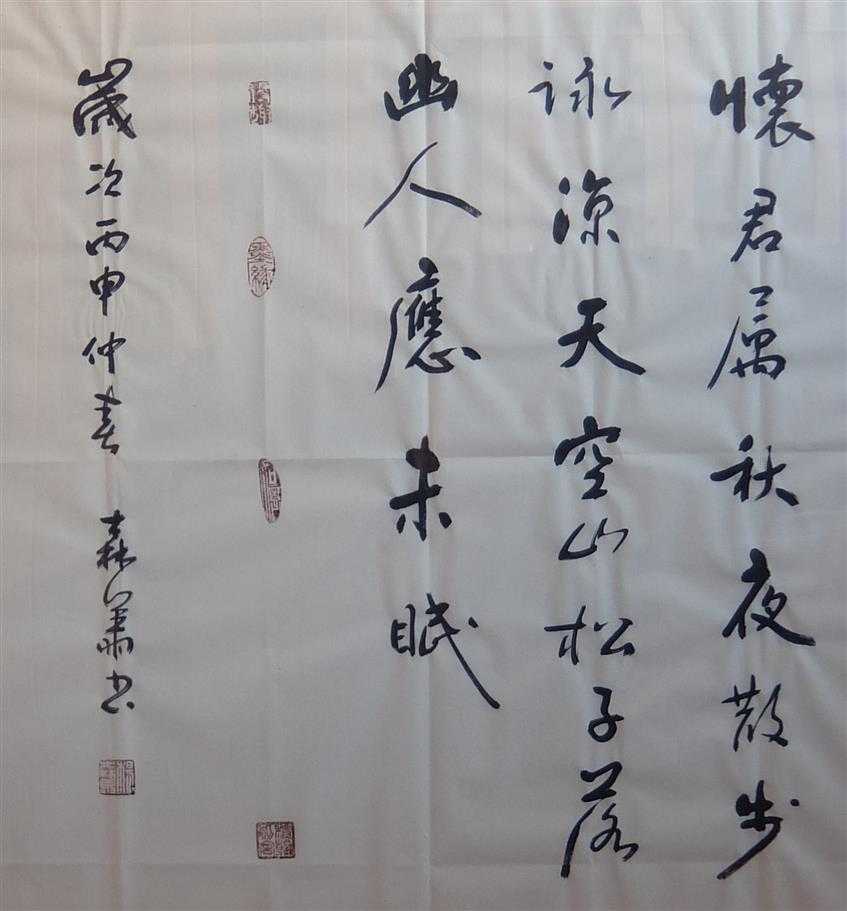 懷君属秋夜散步
詠涼天空山松子落
幽人應未眠
歲次丙申仲春 森箫书